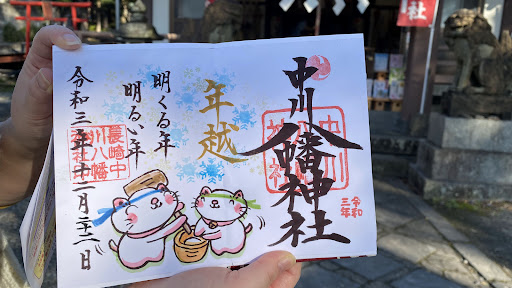 中川八幡神社
令和三年
年越
明くる年
明るい年
長崎中川八幡神社
令和三年十二月二十八日
社